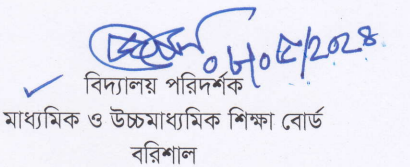 ০৮/০৫/২০২৪
বিদ্যালয় পরিদর্শক
মাধ্যমিক ও উচ্চমাধ্যমিক শিক্ষা বোর্ড
বরিশাল